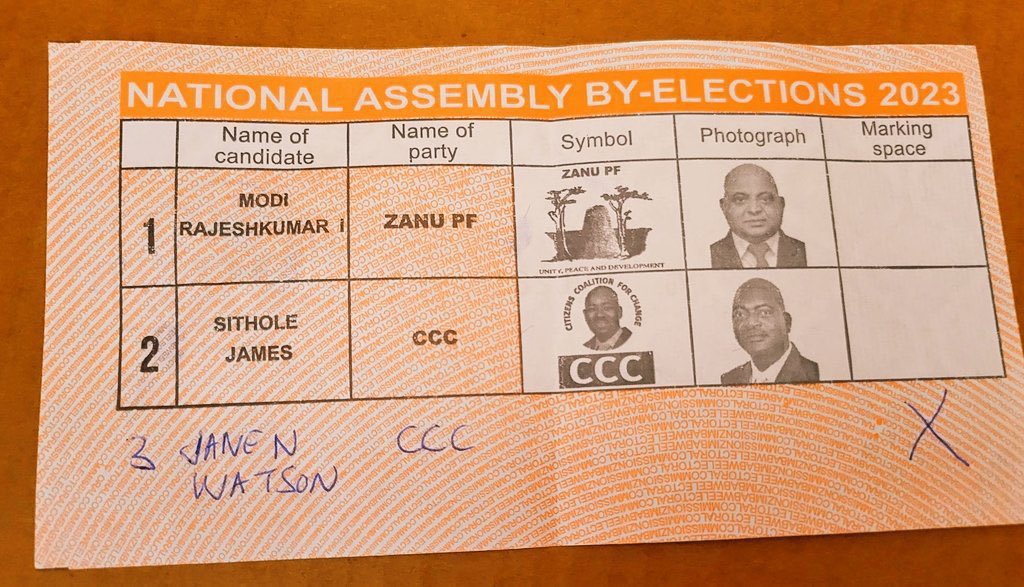 NATIONAL ASSEMBLY BY-ELECTIONS 2023
Name of candidate
Name of party
Symbol
Photograph
Marking space
1
MODI
RAJESHKUMAR I
ZANU PF
ZANU PF
UNITY, PEACE AND DEVELOPMENT
2
SITHOLE
JAMES
CCC
CITIZENS COALITION FOR CHANGE
CCC
3 JANE N CCC X
WATSON